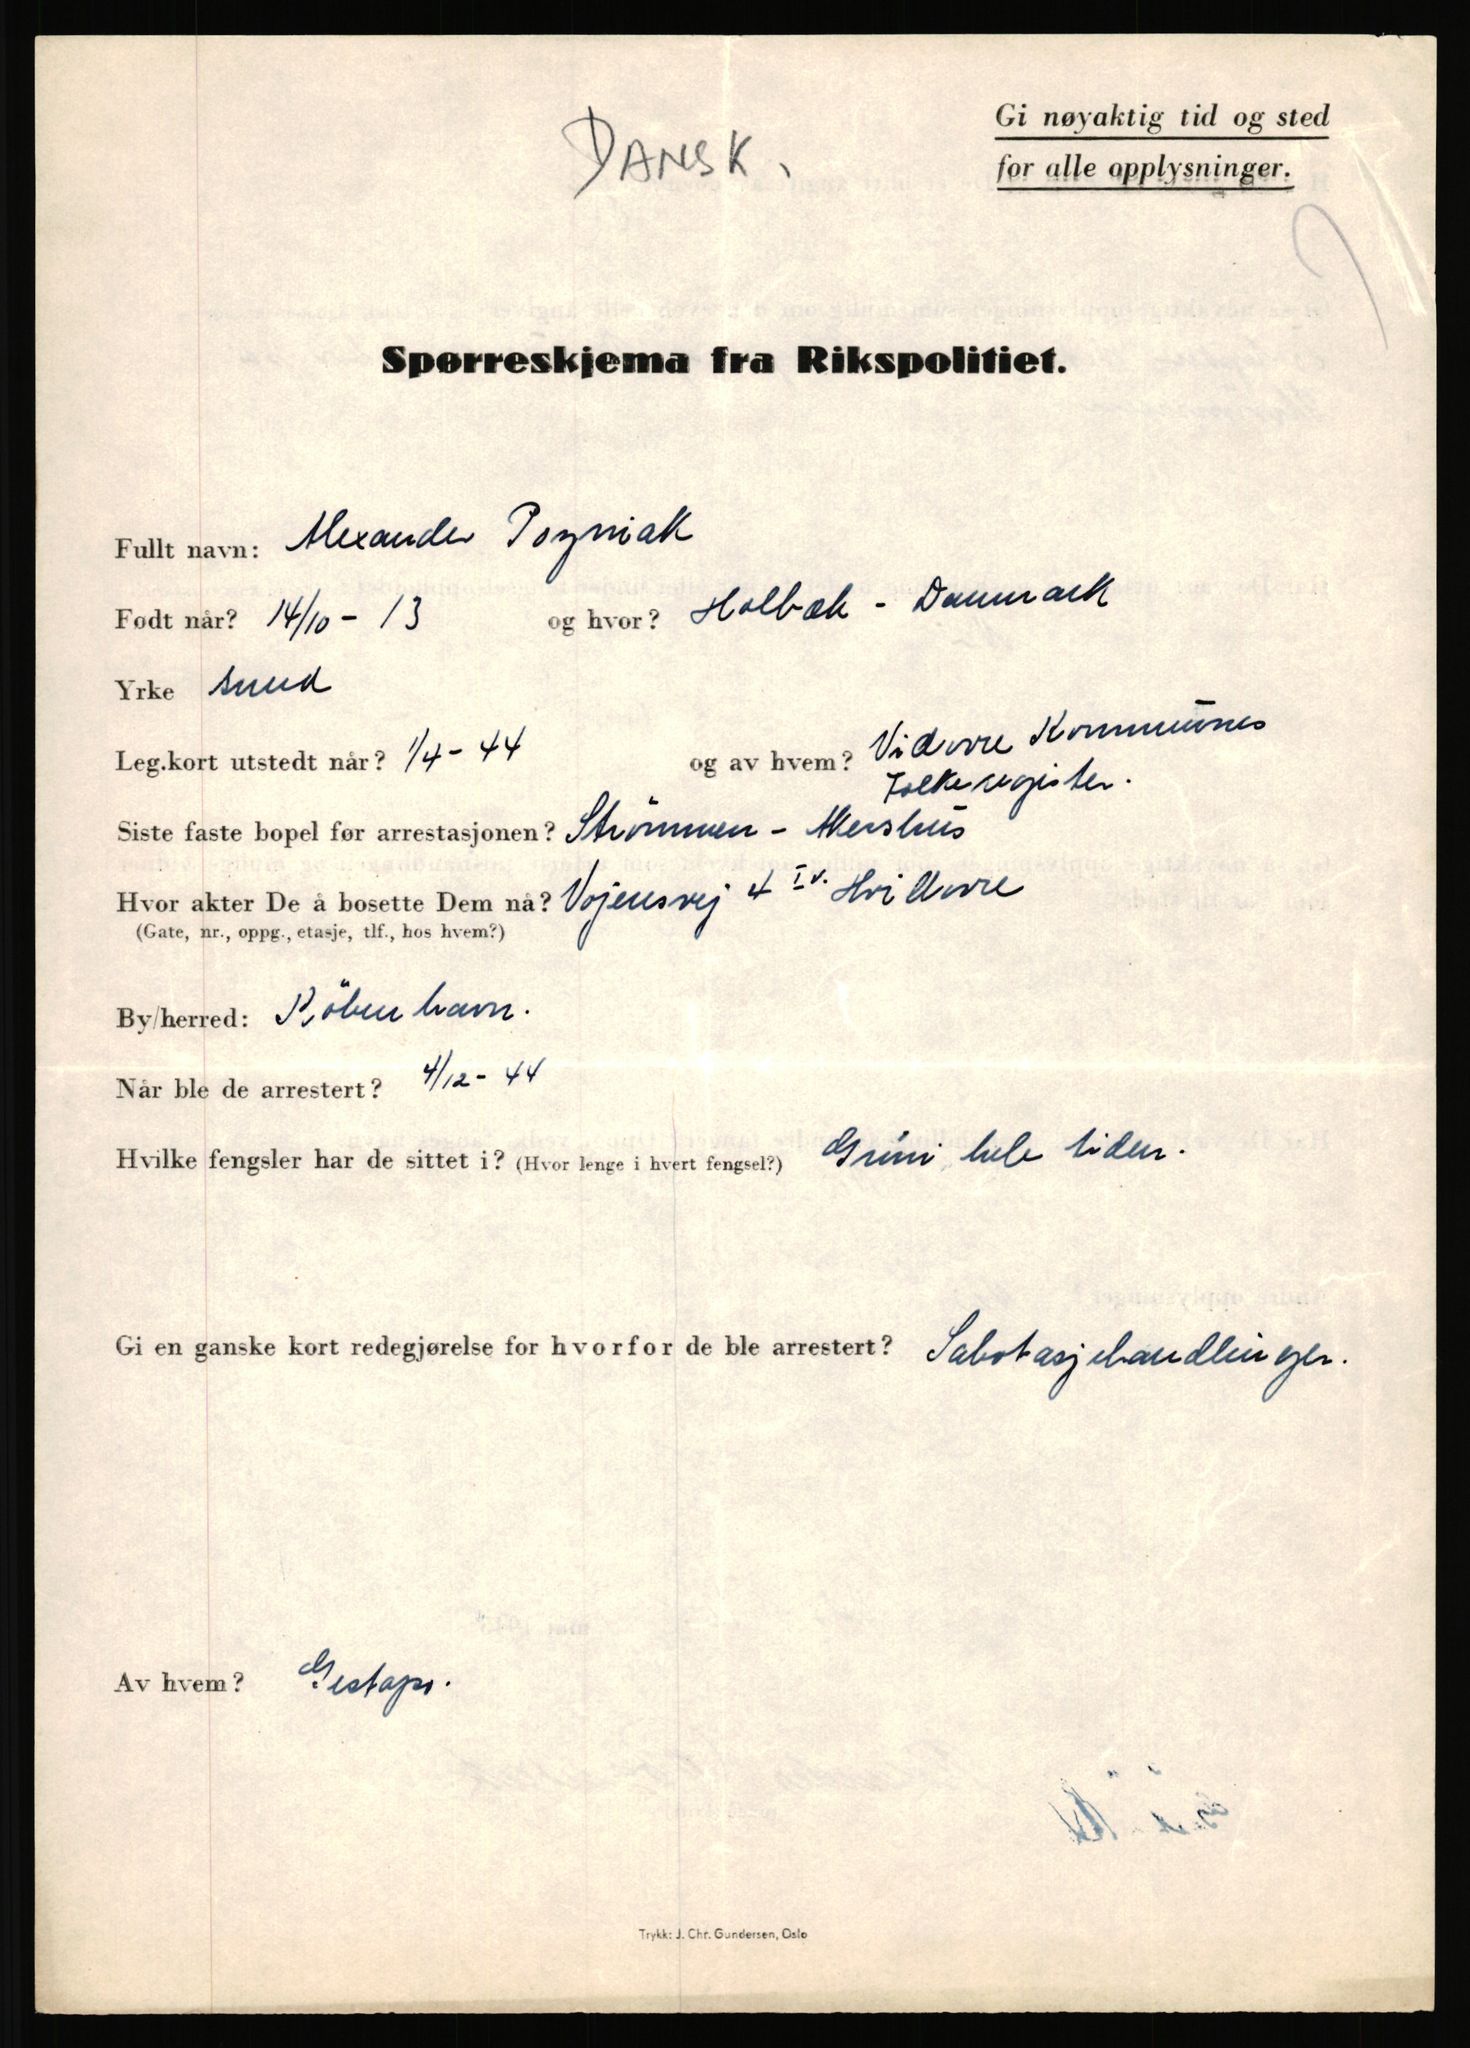 DANSK.
Gi nøyaktig tid og sted
for alle opplysninger.
Spørreskjema fra Rikspolitiet.
Fullt navn: Alexander Pozniak
Født når? 14/10 - 13 og hvor? Holbæk - Danmark
Yrke smed
Leg.kort utstedt når? 1/4 - 44 og av hvem? Vidovre Kommunes
Folkeregister.
Siste faste bopel før arrestasjonen? Strömmen - Akershus
Hvor akter De å bosette Dem nå? Vojensvej 4 I v. Hvidovre
(Gate, nr., oppg., etasje, tlf., hos hvem?)
By/herred: Köbenhavn.
Når ble de arrestert? 4/12 - 44
Hvilke fengsler har de sittet i? (Hvor lenge i hvert fengsel?) Grini, hele tiden.
Gi en ganske kort redegjørelse for hvorfor de ble arrestert? Sabotasjehandlinger.
Av hvem? Gestapo.
Trykk: J. Chr. Gundersen, Oslo